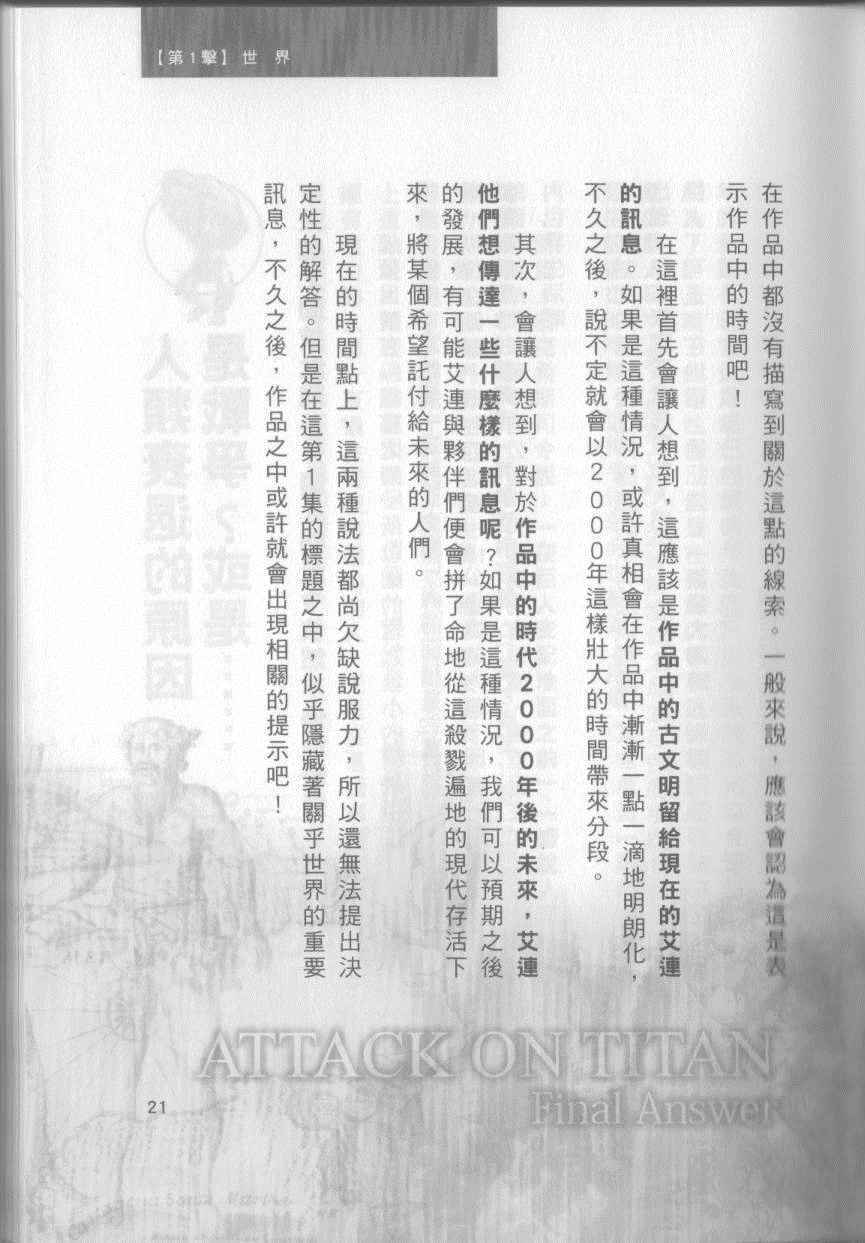 【第1擊】世 界
在作品中都沒有描寫到關於這點的線索。一般來說，應該會認為這是表
示作品中的時間吧！
在這裡首先會讓人想到，這應該是作品中的古文明留給現在的艾連
的訊息。如果是這種情況，或許真相會在作品中漸漸一點一滴地明朗化，
不久之後，說不定就會以2000年這樣壯大的時間帶來分段。
其次，會讓人想到，對於作品中的時代2000年後的未來，艾連
他們想傳達一些什麼樣的訊息呢？如果是這種情況，我們可以預期之後
的發展，有可能艾連與夥伴們便會拼了命地從這殺戮遍地的現代存活下
來，將某個希望託付給未來的人們。
現在的時間點上，這兩種說法都尚欠缺說服力，所以還無法提出決
定性的解答。但是在這第1集的標題之中，似乎隱藏著關乎世界的重要
訊息，不久之後，作品之中或許就會出現相關的提示吧！
ATTACK ON TITAN
Final Answer
21